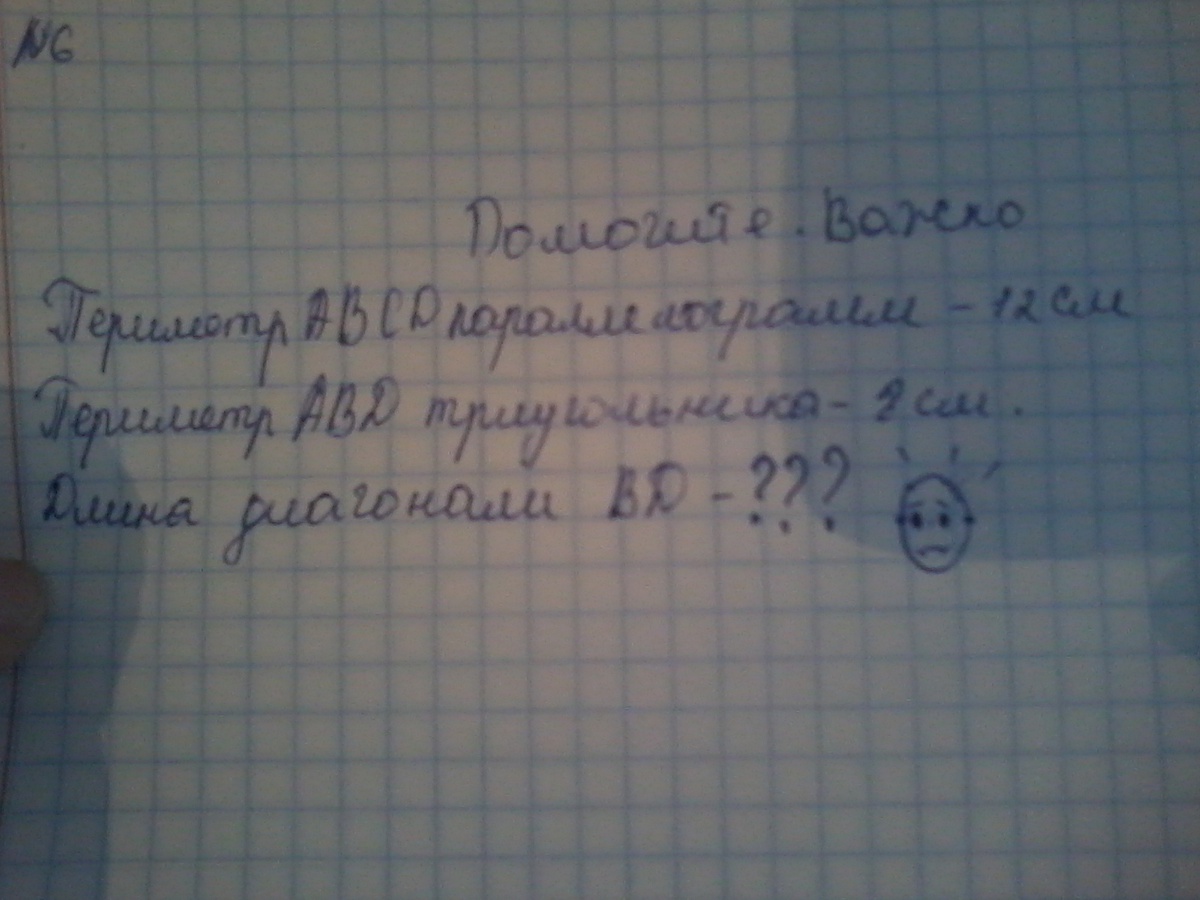 №6
Помогите. Важно
Периметр ABCD паралелограмм - 12 см
Периметр ABD триугольника - см.
Длина диагонали BD - ???